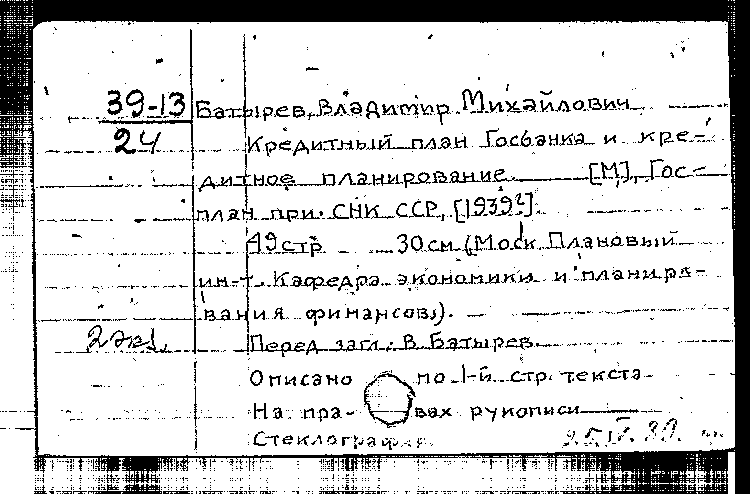 39-13 Батырев, Владимир Михайлович
24 Кредитный план Госбанка и кре-
дитное планирование. [М], Гос-
план при. СНК ССР, [1939?].
49 стр 30 см (Моск. Плановый
ин-т. Кафедра экономики и планиро-
вания финансов).
2 экз. Перед загл.: В. Батырев
Описано по 1-й стр. текста
На пра- вах рукописи
Стеклография.